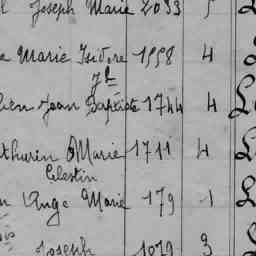 Joseph Marie 2033 5
Marie Isidore 1998 4
Jh
Jean Baptiste 1744 4
thurin Marie 1711 4
Celestin
Ange Marie 179 1
Joseph 1079 3